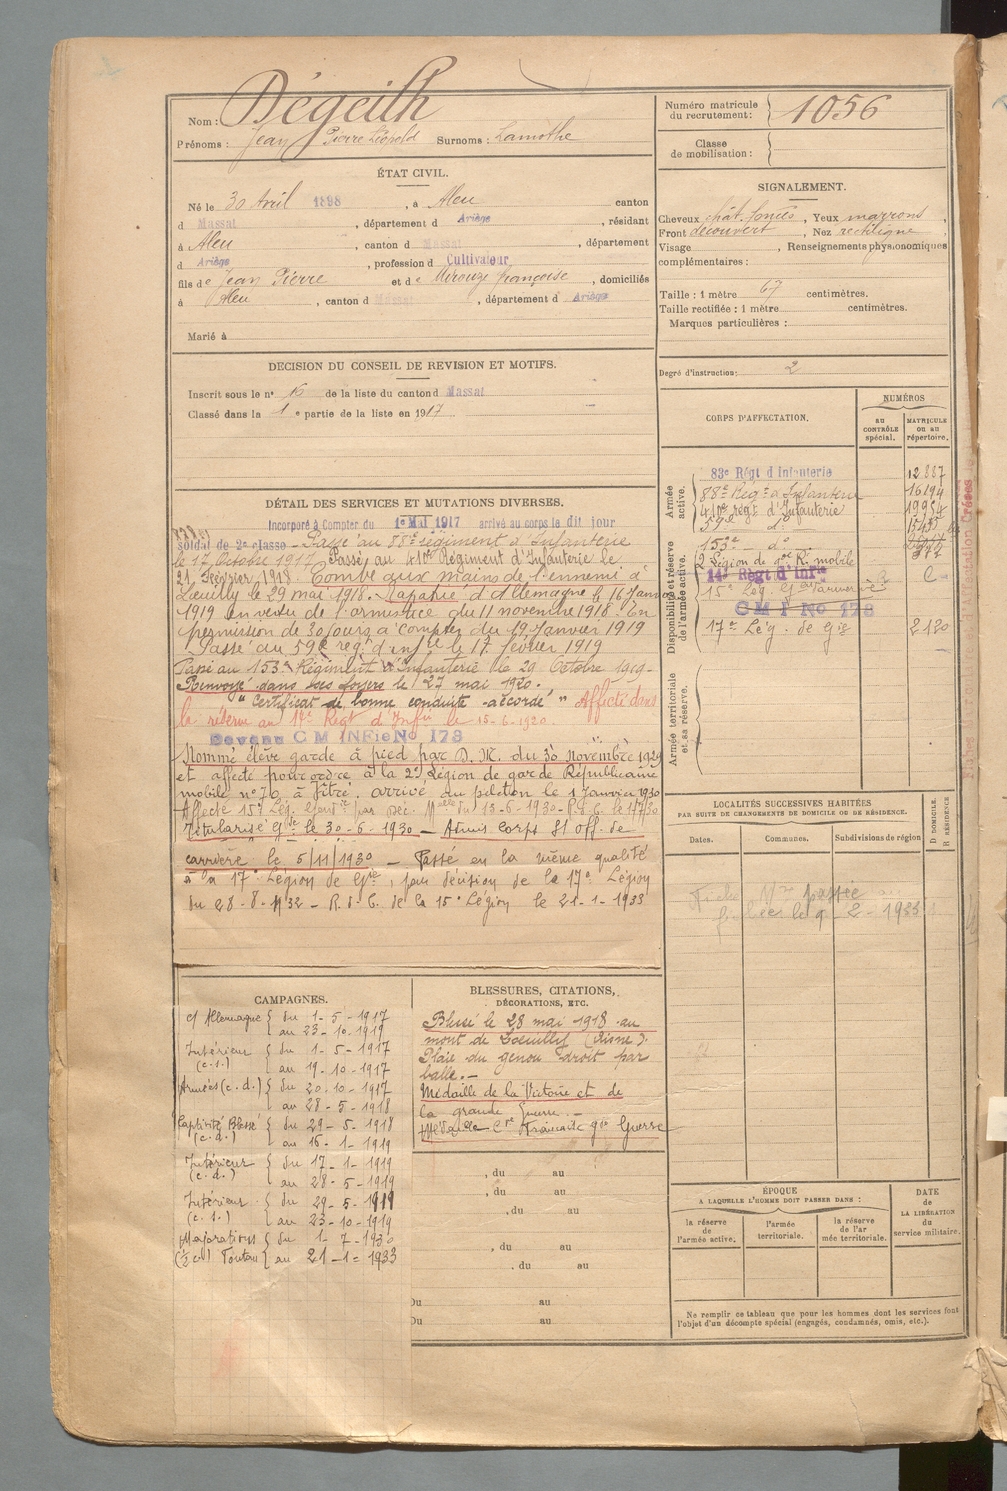 Nom : Dégeilh
Prénoms : Jean Pierre Léopold Surnoms : Lamothe
Numéro matricule du recrutement : 1056
Classe de mobilisation :
ÉTAT CIVIL.
Né le 30 Avril 1898, à Aleu canton
d Massat, département d Ariège, résidant
à Aleu, canton d Massat, département
d Ariège, profession d Cultivateur,
fils de Jean Pierre et de Mirouze françoise, domiciliés
à Aleu, canton d Massat, département d Ariège
Marié à
SIGNALEMENT.
Cheveux chât. foncés, Yeux marrons,
Front découvert, Nez rectiligne,
Visage, Renseignements physionomiques
complémentaires :
Taille : 1 mètre 67 centimètres.
Taille rectifiée : 1 mètre centimètres.
Marques particulières :
Degré d'instruction : 2
DECISION DU CONSEIL DE REVISION ET MOTIFS.
Inscrit sous le n° de la liste du canton d Massat
Classé dans la 1e partie de la liste en 1917
DÉTAIL DES SERVICES ET MUTATIONS DIVERSES.
Incorporé à Compter du 1er Mai 1917 arrivé au corps le dit jour
soldat de 2e classe – Passé au 88e régiment d'Infanterie
le 17 Octobre 1917 Passé au 410e Régiment d'Infanterie le
21 Février 1918. Tombé aux mains de l'ennemi à
Loeuilly le 29 mai 1918. Rapatrié d'Allemagne le 16 Janv
1919 en vertu de l'armistice du 11 novembre 1918. En
permission de 30 jours à compter du 19 Janvier 1919
Passé au 59e rég. d'infie le 17 février 1919
Passé au 153e Régiment d'Infanterie le 29 Octobre 1919-
Renvoyé dans ses foyers le 27 mai 1920.
"Certificat de bonne conduite accordé" Affecté dans
la réserve au 14e Régt d'Infie le 15-6-1920.
Devenu C M INFie No 178
Nommé élève garde à pied par D. M. du 30 Novembre 1929
et affecté pour ordre à la 2e Légion de garde Républicaine
mobile n° 70 à Vitré. arrivé au peloton le 1 Janvier 1930
Affecté 15e Lég. par Déc. Mlle du 13-6-1930-R.d.C. le 1-7-30
Titularisé Gde le 30-6-1930 – Admis Corps S/off. de
carrière le 5/11/1930 – Passé en la même qualité
à la 17e Légion de Gie, par décision de la 17e Légion
du 28-8-1932 – R.d.C. de la 15e Légion le 21-1-1933
CORPS D'AFFECTATION.
NUMÉROS
au CONTRÔLE spécial.
MATRICULE ou au répertoire.
Armée active.
83e Régt d Infanterie 12887
88e Régt d'Infanterie 16194
410e régt d'Infanterie 19954
59e do
153e do
Disponibilité et réserve de l'armée active.
2 Légion de gde R. mobile
14e Régt d'Infie
15e Lég. Gie
C M I No 178
17e Lég. de Gie 2120
Armée territoriale et sa réserve.
LOCALITÉS SUCCESSIVES HABITÉES
PAR SUITE DE CHANGEMENTS DE DOMICILE OU DE RÉSIDENCE.
Dates. Communes. Subdivisions de région D DOMICILE. R RÉSIDENCE
Fiche passée
le 9-2-1933
CAMPAGNES.
c/ Allemagne { du 1-5-1917
au 23-10-1919
Intérieur (c.s.) { du 1-5-1917
au 19-10-1917
Armées (c.d.) { du 20-10-1917
au 28-5-1918
Captivité Blessé (c.d.) { du 29-5-1918
au 16-1-1919
Intérieur (c.d.) { du 17-1-1919
au 28-5-1919
Intérieur (c.s.) { du 29-5-1919
au 23-10-1919
Majorations { du 1-7-1930
(½ cs) Toulon { au 21-1-1933
BLESSURES, CITATIONS,
DÉCORATIONS, ETC.
Blessé le 28 mai 1918 au
mont de Loeuilly (Aisne).
Plaie du genou droit par
balle.-
Médaille de la Victoire et de
la grande Guerre.-
Médaille Cve Française Gde Guerre
, du au
, du au
, du au
, du au
, du au
Du au
Du au
ÉPOQUE
A LAQUELLE L'HOMME DOIT PASSER DANS :
la réserve de l'armée active.
l'armée territoriale.
la réserve de l'armée territoriale.
DATE de LA LIBÉRATION du service militaire.
Ne remplir ce tableau que pour les hommes dont les services font
l'objet d'un décompte spécial (engagés, condamnés, omis, etc.).